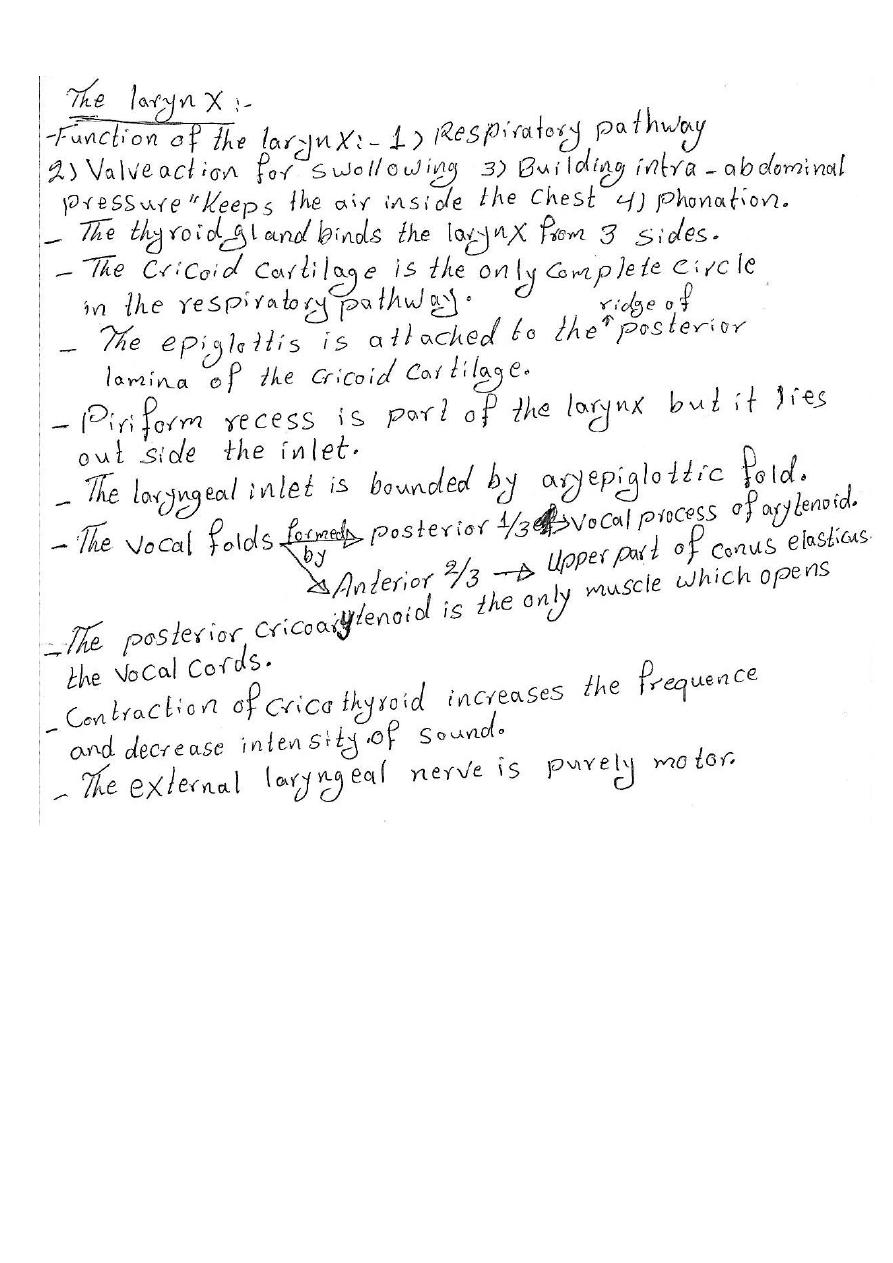 The larynx :-
-Function of the larynx:- 1) Respiratory pathway
2) Valve action for swollowing 3) Building intra-abdominal
pressure "Keeps the air inside the chest 4) phonation.
- The thyroid gland binds the larynx from 3 sides.
- The Cricoid Cartilage is the only complete circle
in the respiratory pathway.
ridge of
- The epiglottis is attached to the ↑ posterior
lamina of the cricoid Cartilage.
- Piriform recess is part of the larynx but it lies
out side the inlet.
- The laryngeal inlet is bounded by aryepiglottic fold.
- The vocal folds formed by → posterior 1/3 → vocal process of arytenoid.
→ Anterior 2/3 → Upper part of conus elasticus
- The posterior cricoarytenoid is the only muscle which opens
the vocal cords.
- Contraction of cricothyroid increases the frequence
and decrease intensity of sound.
- The external laryngeal nerve is purely motor.